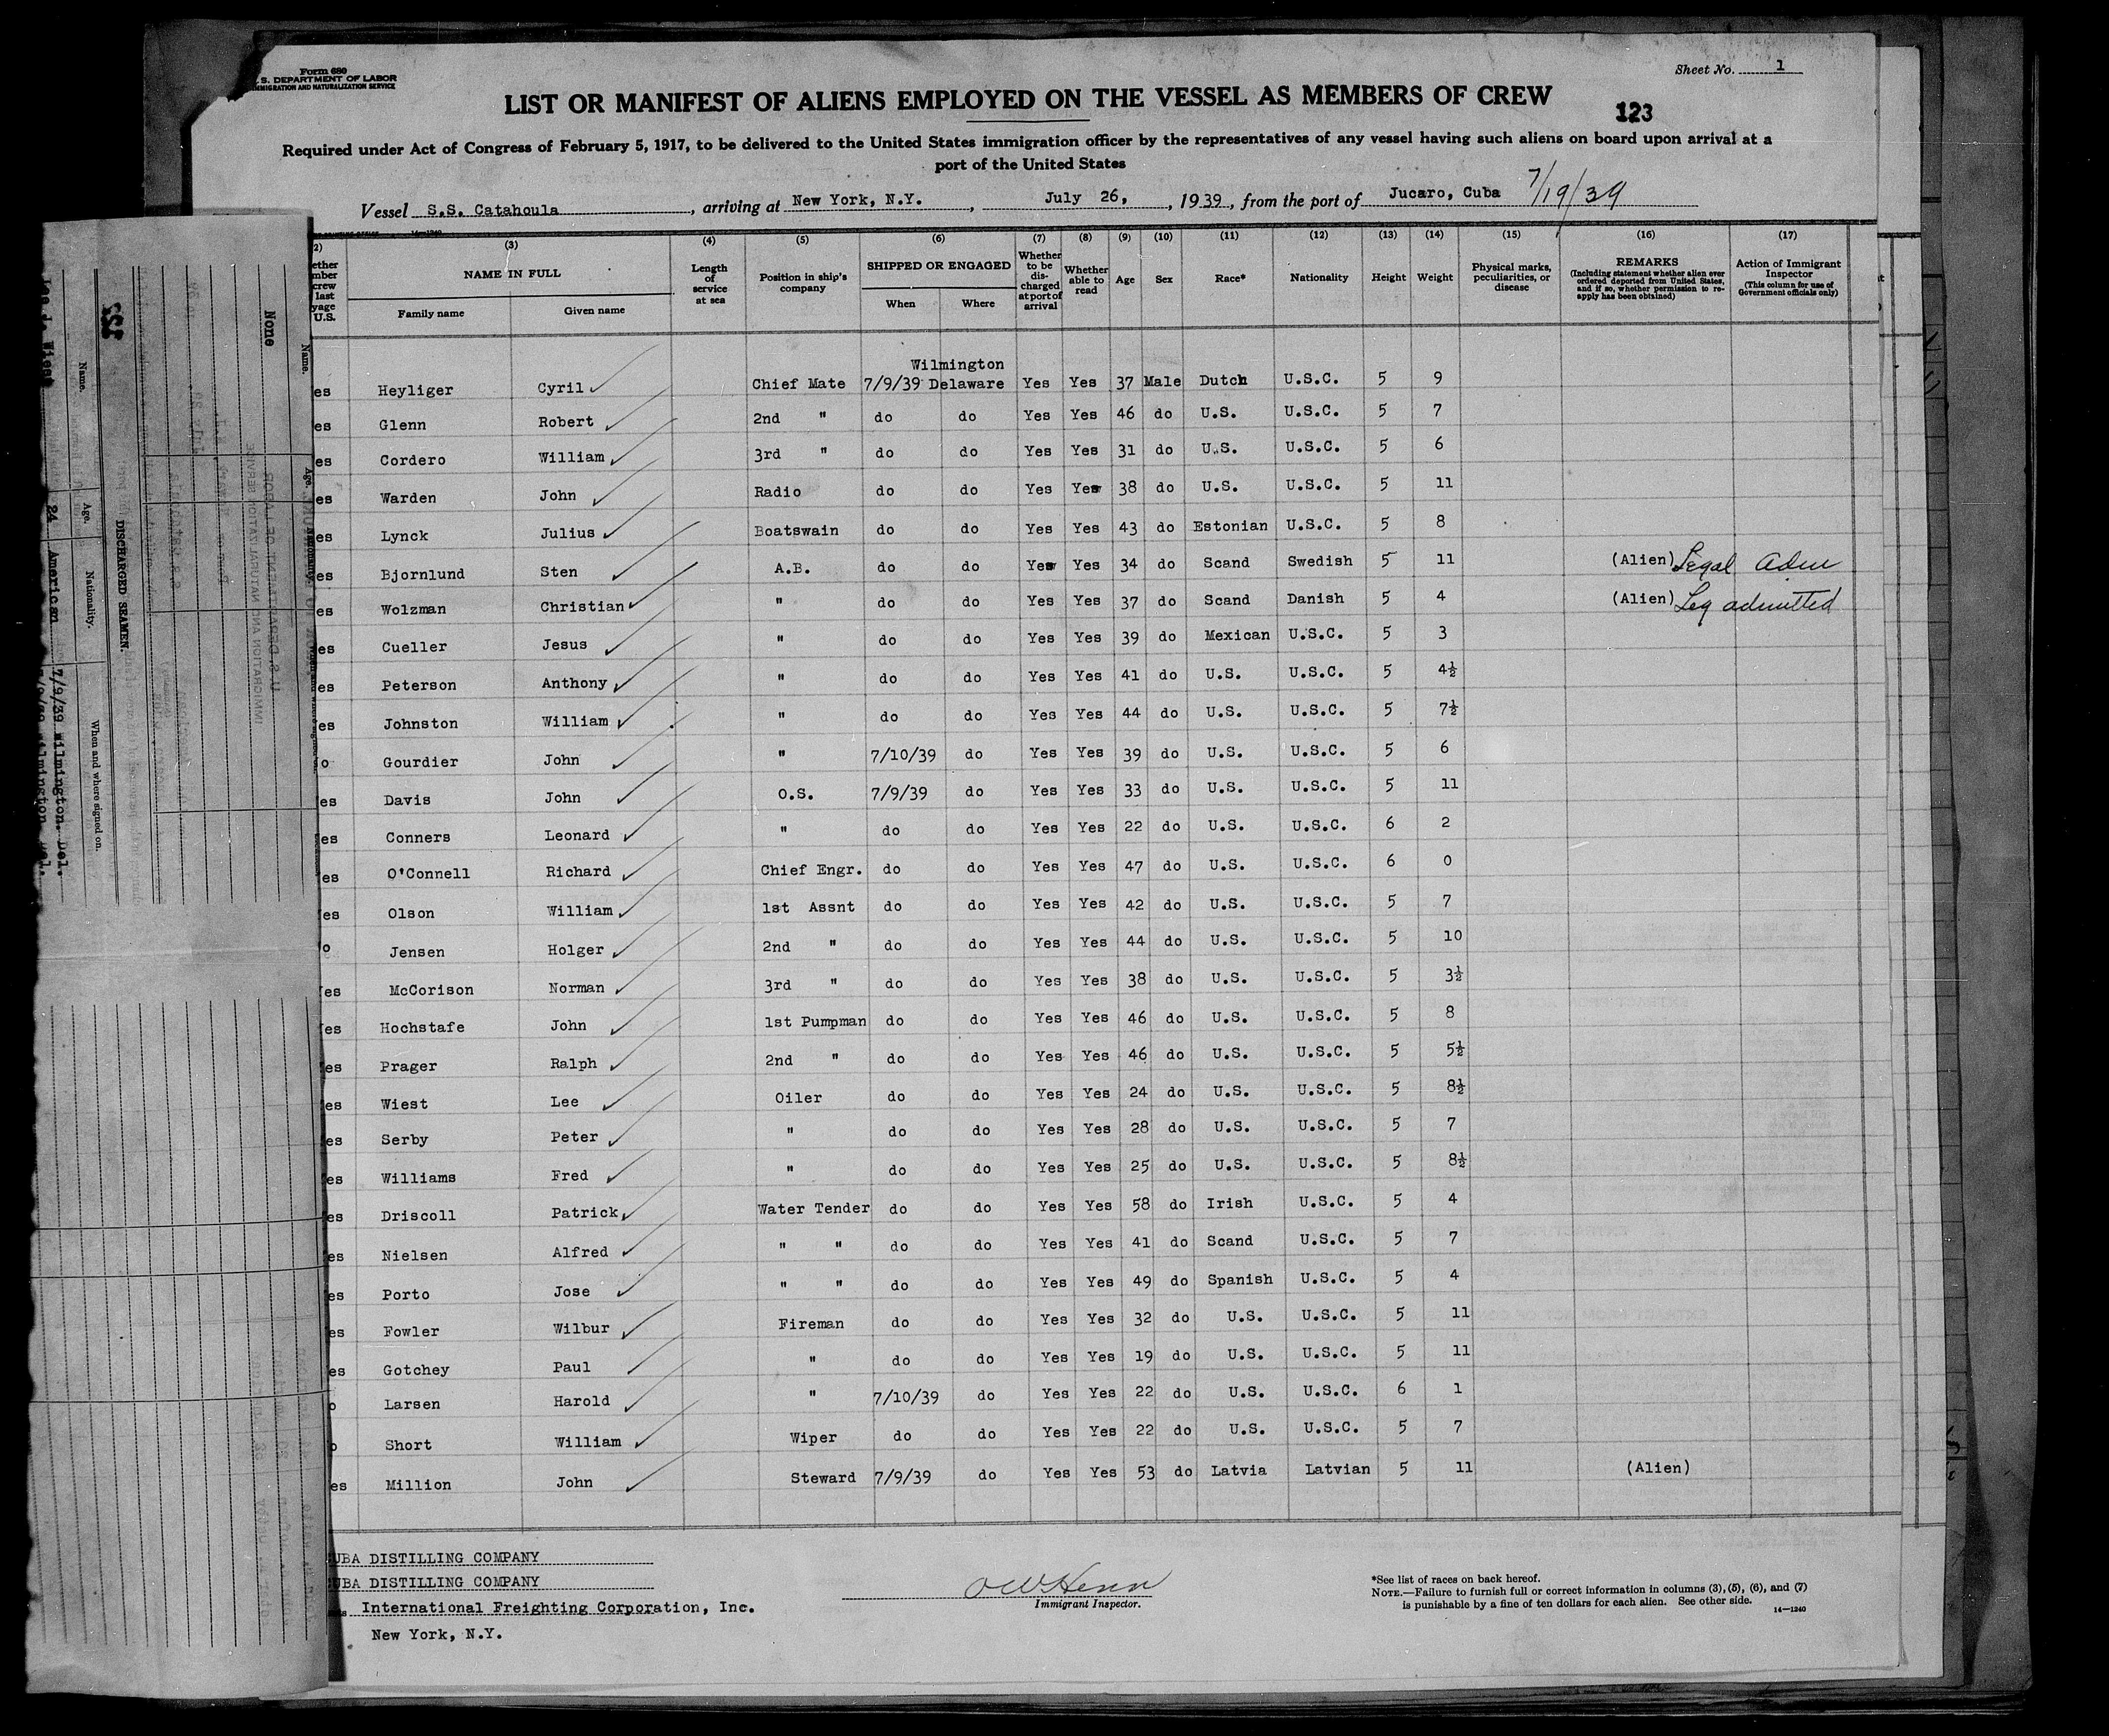 Form 680
S. DEPARTMENT OF LABOR
IMMIGRATION AND NATURALIZATION SERVICE
Sheet No. 1
LIST OR MANIFEST OF ALIENS EMPLOYED ON THE VESSEL AS MEMBERS OF CREW
123
Required under Act of Congress of February 5, 1917, to be delivered to the United States immigration officer by the representatives of any vessel having such aliens on board upon arrival at a
port of the United States
Vessel S.S. Catahoula, arriving at New York, N.Y., July 26, 1939, from the port of Jucaro, Cuba 7/19/39
(3) (4) (5) (6) (7) (8) (9) (10) (11) (12) (13) (14) (15) (16) (17)
NAME IN FULL Length of service at sea Position in ship's company SHIPPED OR ENGAGED Whether to be discharged at port of arrival Whether able to read Age Sex Race* Nationality Height Weight Physical marks, peculiarities, or disease REMARKS (Including statement whether alien ever ordered deported from United States, and if so, whether permission to re-apply has been obtained) Action of Immigrant Inspector (This column for use of Government officials only)
Family name Given name When Where
Wilmington
es Heyliger Cyril Chief Mate 7/9/39 Delaware Yes Yes 37 Male Dutch U.S.C. 5 9
es Glenn Robert 2nd " do do Yes Yes 46 do U.S. U.S.C. 5 7
es Cordero William 3rd " do do Yes Yes 31 do U.S. U.S.C. 5 6
es Warden John Radio do do Yes Yes 38 do U.S. U.S.C. 5 11
es Lynck Julius Boatswain do do Yes Yes 43 do Estonian U.S.C. 5 8
es Bjornlund Sten A.B. do do Yes Yes 34 do Scand Swedish 5 11 (Alien) Legal Adm
es Wolzman Christian " do do Yes Yes 37 do Scand Danish 5 4 (Alien) Leg admitted
es Cueller Jesus " do do Yes Yes 39 do Mexican U.S.C. 5 3
es Peterson Anthony " do do Yes Yes 41 do U.S. U.S.C. 5 4½
es Johnston William " do do Yes Yes 44 do U.S. U.S.C. 5 7½
o Gourdier John " 7/10/39 do Yes Yes 39 do U.S. U.S.C. 5 6
es Davis John O.S. 7/9/39 do Yes Yes 33 do U.S. U.S.C. 5 11
es Conners Leonard " do do Yes Yes 22 do U.S. U.S.C. 6 2
es O'Connell Richard Chief Engr. do do Yes Yes 47 do U.S. U.S.C. 6 0
es Olson William 1st Assnt do do Yes Yes 42 do U.S. U.S.C. 5 7
o Jensen Holger 2nd " do do Yes Yes 44 do U.S. U.S.C. 5 10
es McCorison Norman 3rd " do do Yes Yes 38 do U.S. U.S.C. 5 3½
es Hochstafe John 1st Pumpman do do Yes Yes 46 do U.S. U.S.C. 5 8
es Prager Ralph 2nd " do do Yes Yes 46 do U.S. U.S.C. 5 5½
es Wiest Lee Oiler do do Yes Yes 24 do U.S. U.S.C. 5 8½
es Serby Peter " do do Yes Yes 28 do U.S. U.S.C. 5 7
es Williams Fred " do do Yes Yes 25 do U.S. U.S.C. 5 8½
es Driscoll Patrick Water Tender do do Yes Yes 58 do Irish U.S.C. 5 4
es Nielsen Alfred " " do do Yes Yes 41 do Scand U.S.C. 5 7
es Porto Jose " " do do Yes Yes 49 do Spanish U.S.C. 5 4
es Fowler Wilbur Fireman do do Yes Yes 32 do U.S. U.S.C. 5 11
es Gotchey Paul " do do Yes Yes 19 do U.S. U.S.C. 5 11
o Larsen Harold " 7/10/39 do Yes Yes 22 do U.S. U.S.C. 6 1
o Short William Wiper do do Yes Yes 22 do U.S. U.S.C. 5 7
es Million John Steward 7/9/39 do Yes Yes 53 do Latvia Latvian 5 11 (Alien)
UBA DISTILLING COMPANY
UBA DISTILLING COMPANY
International Freighting Corporation, Inc.
New York, N.Y.
Immigrant Inspector.
*See list of races on back hereof.
NOTE.—Failure to furnish full or correct information in columns (3), (5), (6), and (7)
is punishable by a fine of ten dollars for each alien. See other side.
14—1240
None
Name.
123
DISCHARGED SEAMEN.
Name. Age. Nationality. When and where signed on.
Wiest 24 American 7/9/39 Wilmington. Del.